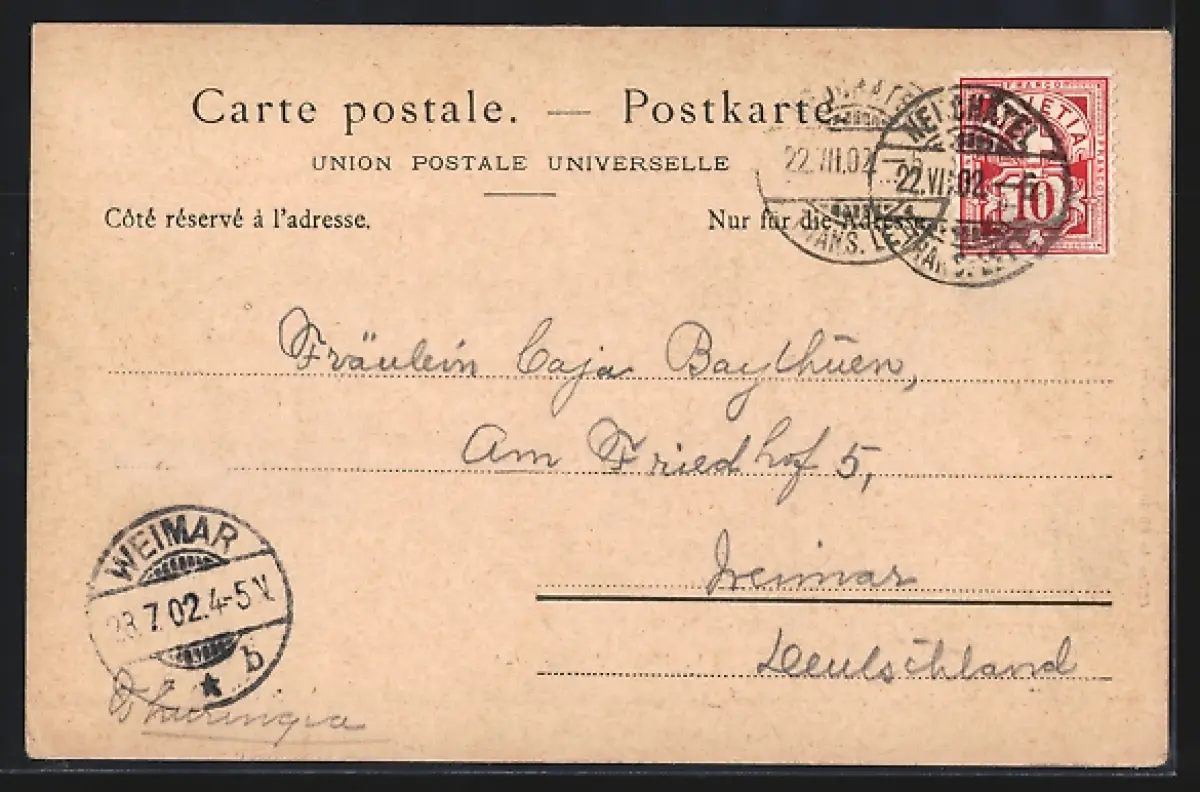 Carte postale. — Postkarte.
UNION POSTALE UNIVERSELLE
Côté réservé à l'adresse. Nur für die Adresse.
NEUCHATEL
22.VII.02.—5
TRANS. LETT
NEUCHATEL
22.VII.02.—6
TRANS. LETT
FRANCO
HELVETIA
FRANCO
10
Fräulein Caja Baythuen,
Am Friedhof 5,
Weimar
Deutschland
WEIMAR
23.7.02.4-5V.
★ b
Thueringia